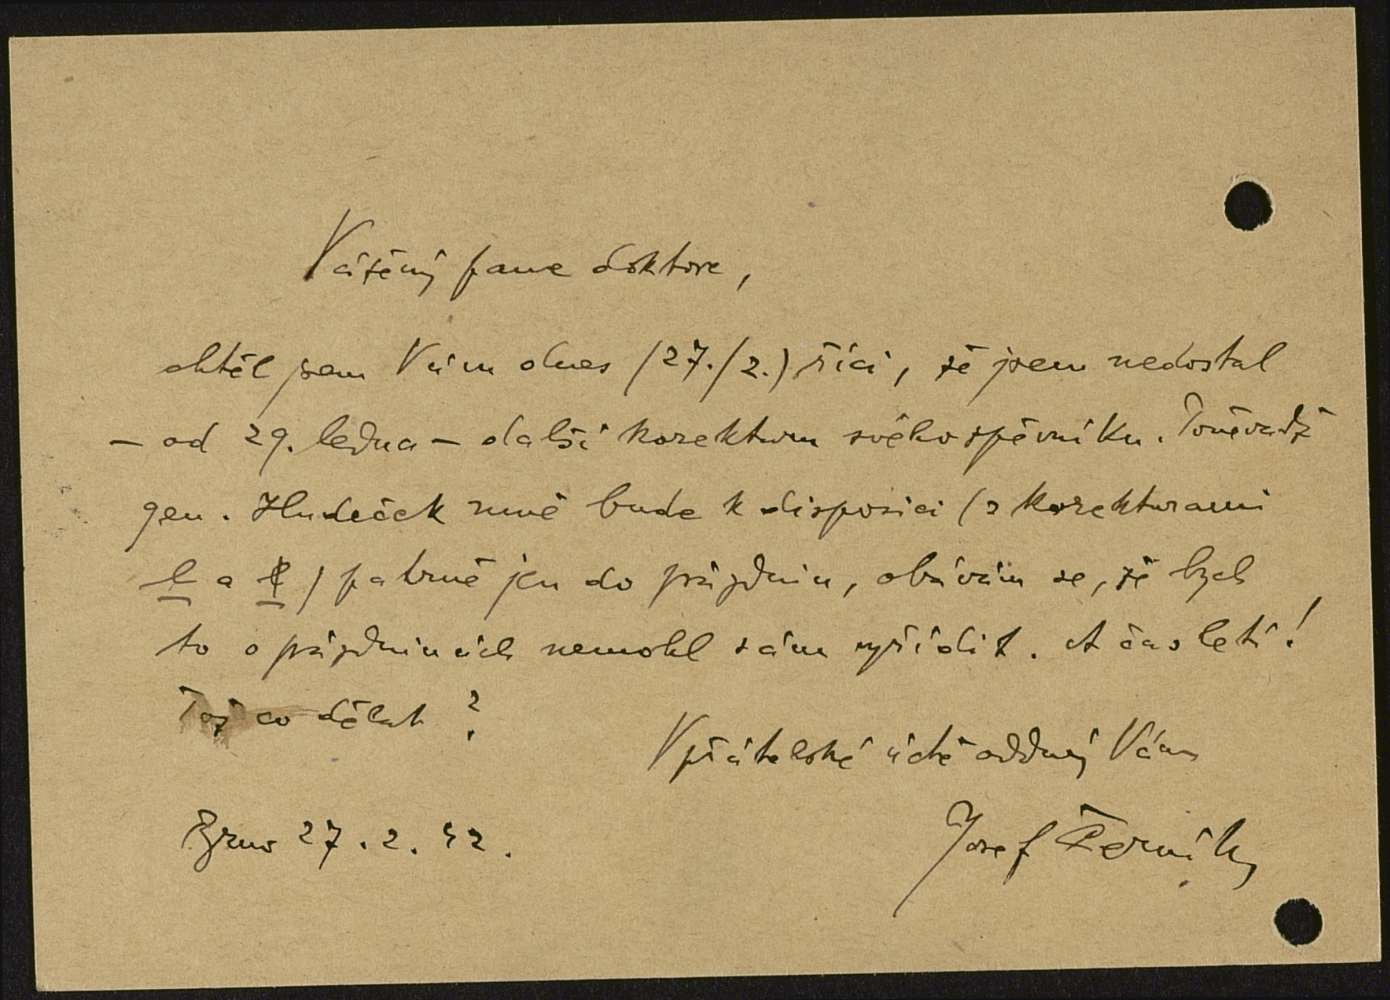 Vážený pane doktore,
chtěl jsem Vám dnes (27./2.) říci, že jsem nedostal
– od 29. ledna – další korekturu svého zpěvníku. Poněvadž
gen. Hudeček mně bude k disposici (s korekturami
a ) patrně jen do prázdnin, obávám se, že bych
to o prázdninách nemohl sám vyřídit. A čas letí!
Tož co dělat?
V přátelské úctě oddaný Vám
Brno 27. 2. 42.
Josef Černík